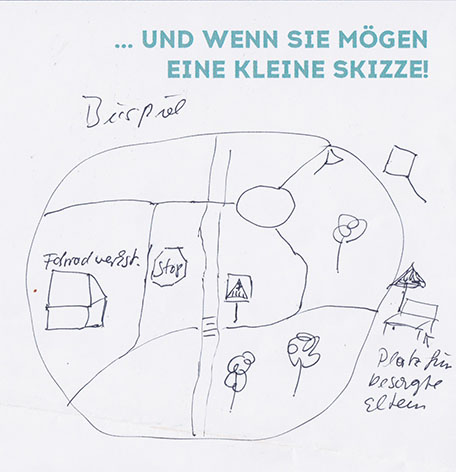 ... UND WENN SIE MÖGEN
EINE KLEINE SKIZZE!
Beispiel
Fahrradwerkst.
Stop
Platz für
besorgte
Eltern